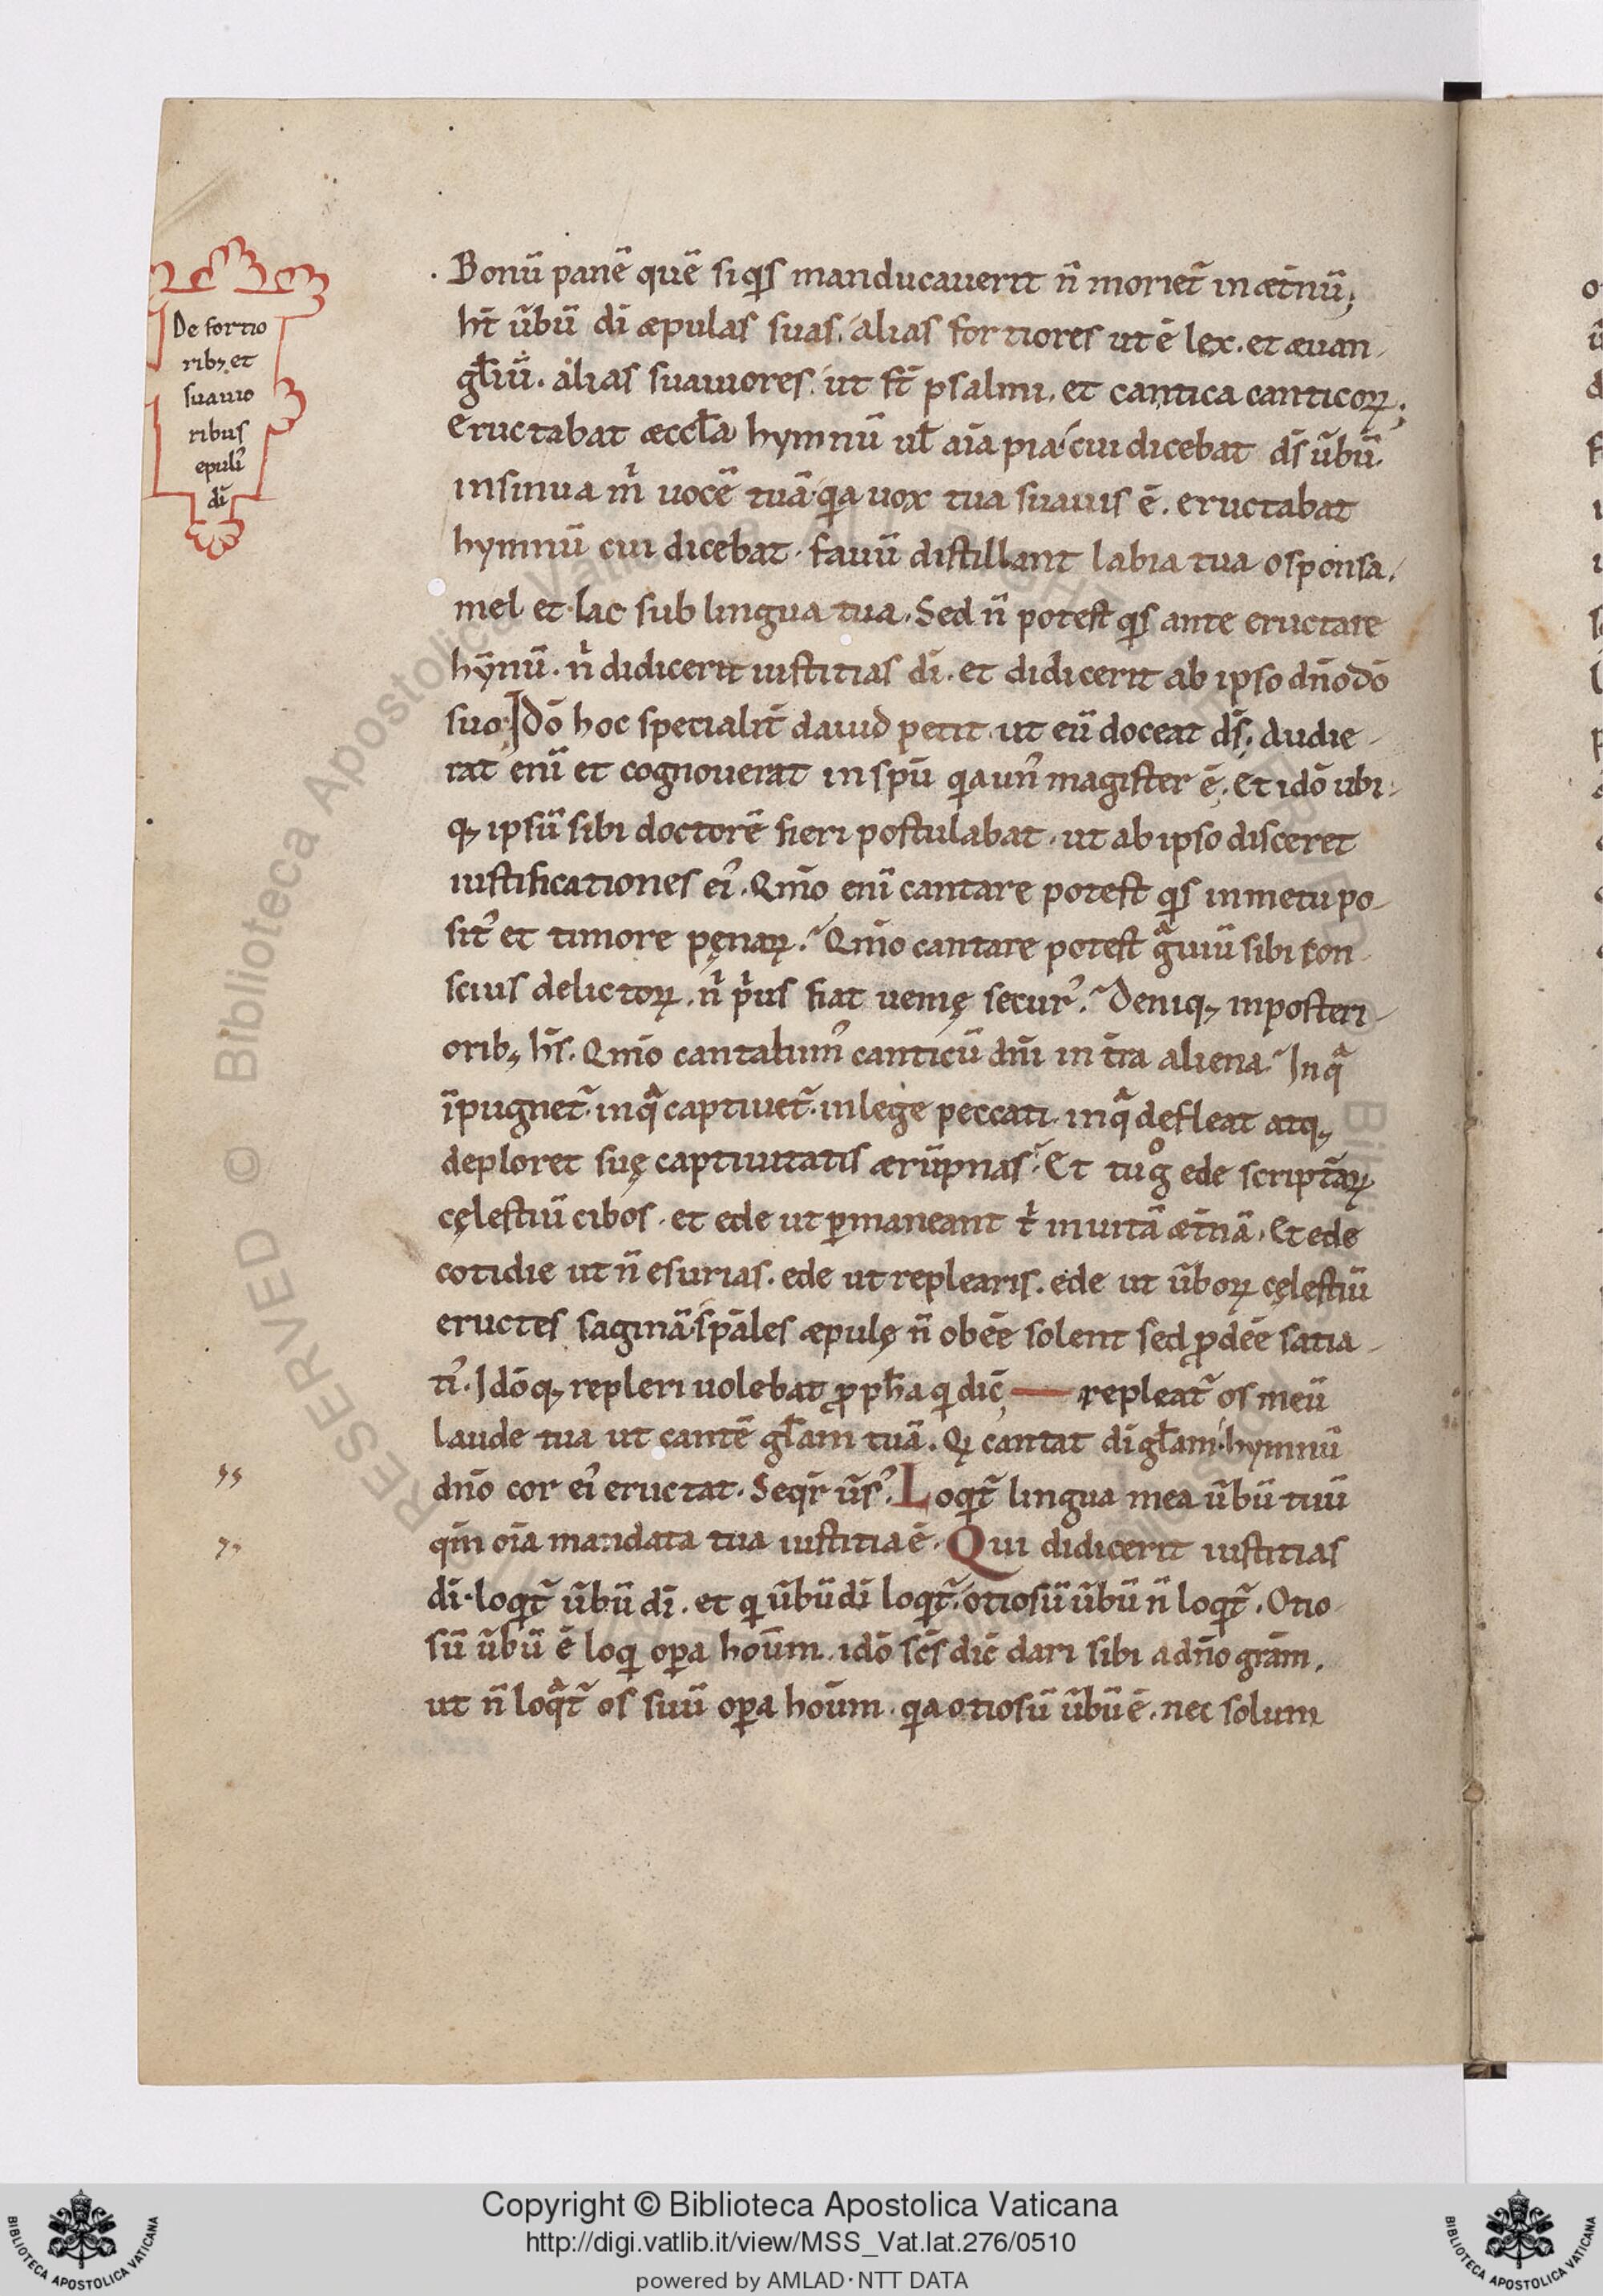 De fortio
ribꝫ et
suauio
ribus
epulꝭ
dī
Bonū panē quē siqͥs manducauerit n̄ moriet᷑ in æt̄nū;
ht̄ ūbū dī æpulas suas. alias fortiores ut ē lex. et æuan
gl̄iū. alias suauiores. ut st̄ psalmi. et cantica canticoꝝ;
Eructabat æccl̄a hymnū ul̄ aīa pia cui dicebat d̄s ūbū.
insinua mͥ uocē tuā qͥa uox tua suauis ē. eructabat
hymnū cui dicebat. fauū distillant labia tua o sponsa.
mel et lac sub lingua tua. Sed n̄ potest qͥs ante eructare
hȳnū. nͥ didicerit iustitias dī. et didicerit ab ipso dn̄o dō
suo; Idō hoc specialit̄ dauid petit ut eū doceat d̄s; Audie
rat enī et cognouerat in spū qͥa un᷒ magister ē; Et idō ubi
qꝫ ipsū sibi doctorē fieri postulabat. ut ab ipso disceret
iustificationes ei᷒. Qm̄o enī cantare potest qͥs in metu po
sit᷒ et timore pęnaꝝ. Qm̄o cantare potest gͣuiū sibi con
scius delictoꝝ. nͥ pͥus fiat uenię secur᷒. Deniqꝫ in posteri
oribꝫ h̄s. Qm̄o cantabim᷒ canticū dn̄i in t̄ra aliena. In qͣ
īpugnet᷑. in qͣ captiuet᷑. in lege peccati. in qͣ defleat atqꝫ
deploret suę captiuitatis ærūpnas. Et tu gͦ ede scriptāꝝ
cęlestiū cibos. et ede ut ꝑmaneant tͥ in uitā æt̄nā. Et ede
cotidie ut n̄ esurias. ede ut replearis. ede ut ūboꝝ cęlestiū
eructes saginā. sp̄ales æpulę n̄ obēē solent sed ꝓdēē satia
ti᷒. Idōqꝫ repleri uolebat ꝓph̄a qͥ dic̄ — repleat᷑ os meū
laude tua ut cantē gl̄am tuā. Qͥ cantat dī gl̄am. hymnū
dn̄o cor ei᷒ eructat. Seqͥr ūs᷒. Loqͥt᷑ lingua mea ūbū tuū
qm̄ oīa mandata tua iustitia ē. Qui didicerit iustitias
dī. loqͥt᷑ ūbū dī. et qͥ ūbū dī loqͥt᷑. otiosū ūbū n̄ loqͥt᷑. Otio
sū ūbū ē loqͥ oꝑa hoūm. idō sc̄s dic̄ dari sibi a dn̄o grām.
ut n̄ loqͣt᷑ os suū oꝑa hoūm. qͥa otiosū ūbū ē. nec solum
RESERVED © Biblioteca Apostolica Vaticana
Copyright © Biblioteca Apostolica Vaticana
http://digi.vatlib.it/view/MSS_Vat.lat.276/0510
powered by AMLAD·NTT DATA
BIBLIOTECA APOSTOLICA VATICANA
BIBLIOTECA APOSTOLICA VATICANA